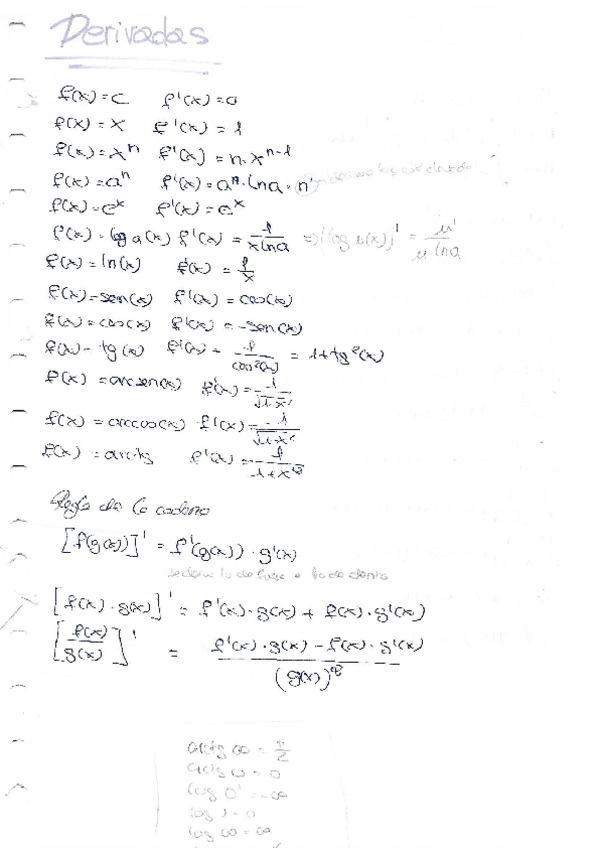 Derivadas
f(x)=c f'(x)=0
f(x)=x f'(x)=1
f(x)=xⁿ f'(x)=n·xⁿ⁻¹
f(x)=aⁿ f'(x)=aⁿ·lna·n'
f(x)=eˣ f'(x)=eˣ
f(x)=log a(x) f'(x)=1/(x lna) => (log u(x))' = u'/(u lna)
f(x)=ln(x) f'(x)=1/x
f(x)=sen(x) f'(x)=cos(x)
f(x)=cos(x) f'(x)=-sen(x)
f(x)=tg(x) f'(x)=1/cos²(x) = 1+tg²(x)
f(x)=arcsen(x) f'(x)=1/√(1-x²)
f(x)=arccos(x) f'(x)=-1/√(1-x²)
f(x)=arctg f'(x)=1/(1+x²)
Regla de la cadena
[f(g(x))]' = f'(g(x))·g'(x)
[f(x)·g(x)]' = f'(x)·g(x)+f(x)·g'(x)
[f(x)/g(x)]' = (f'(x)·g(x)-f(x)·g'(x))/(g(x))²
arctg ∞ = π/2
arctg 0 = 0
log 0⁺ = -∞
log 1 = 0
log ∞ = ∞